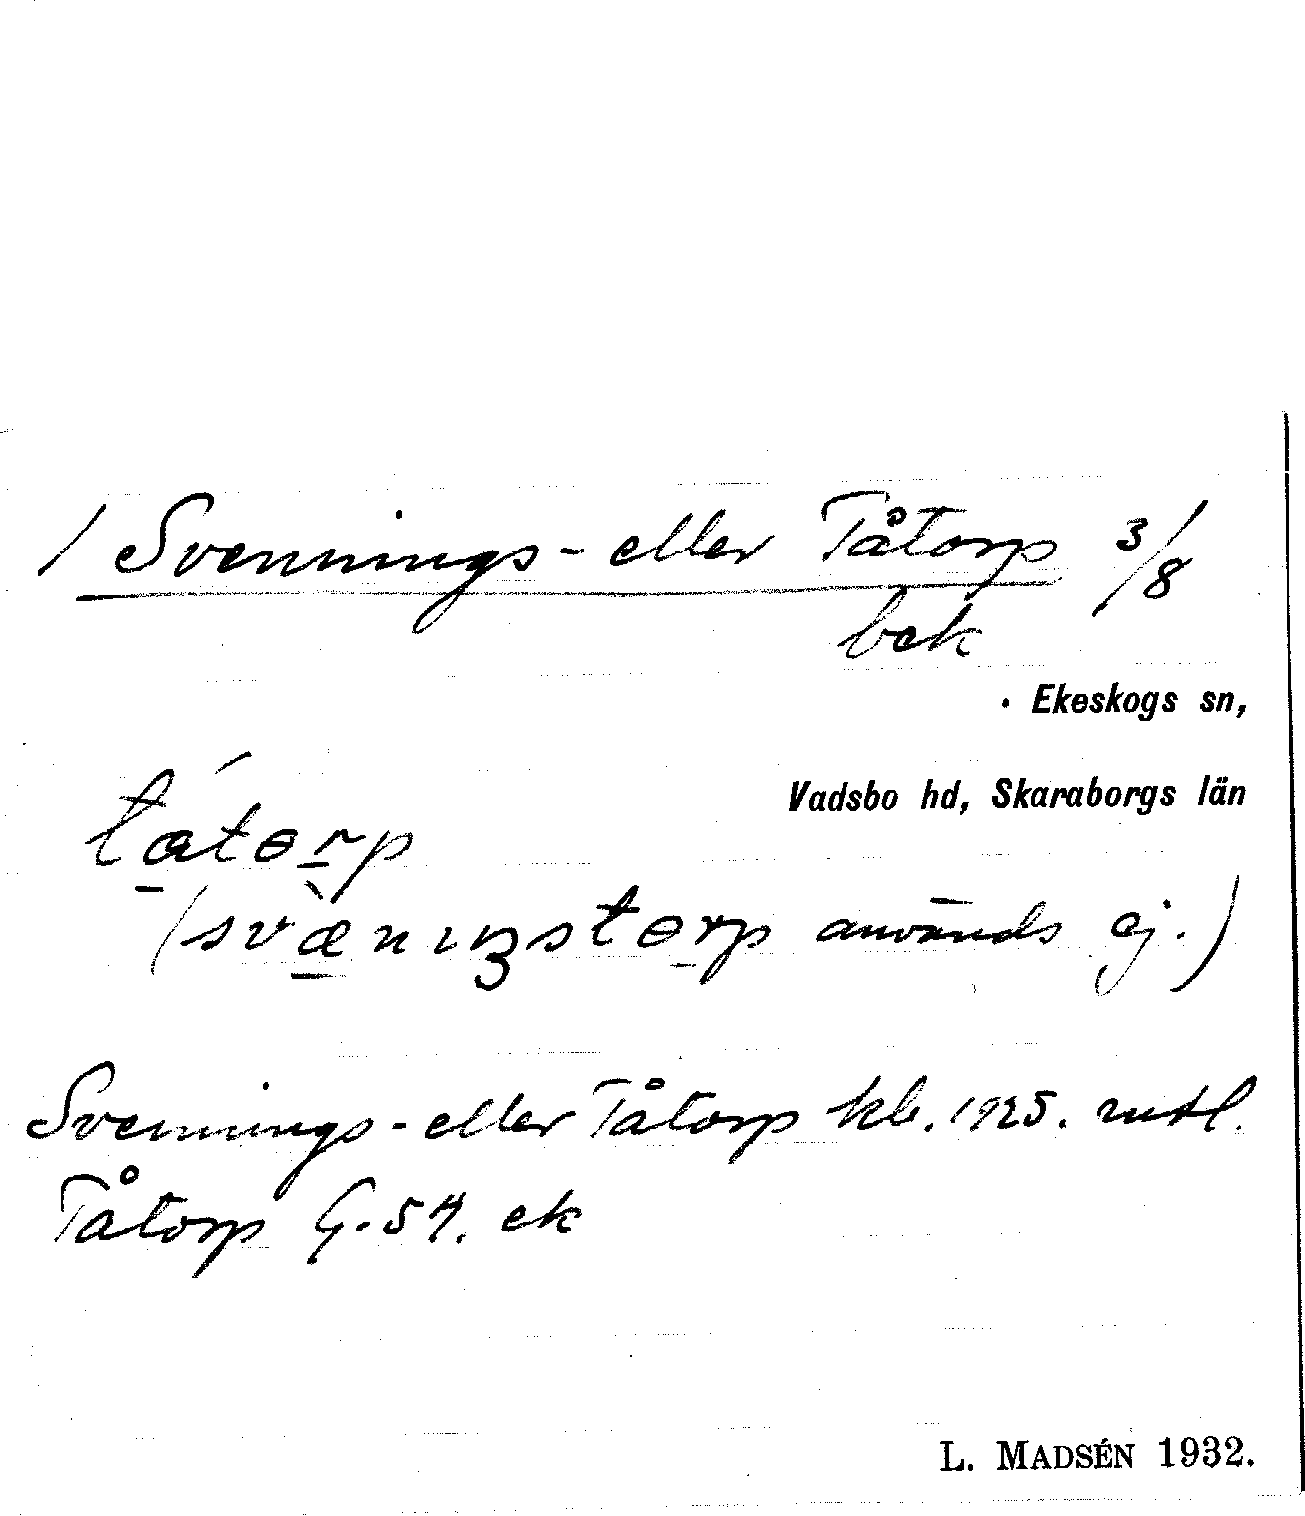 / Svennings- eller Tåtorp 3/8
bek
Ekeskogs sn,
Vadsbo hd, Skaraborgs län
tátɵrp
(svæ̀nıŋstɵrp används ej.)
Svennings- eller Tåtorp kb. 1925. mtl.
Tåtorp G. 54. ek
L. MADSÉN 1932.